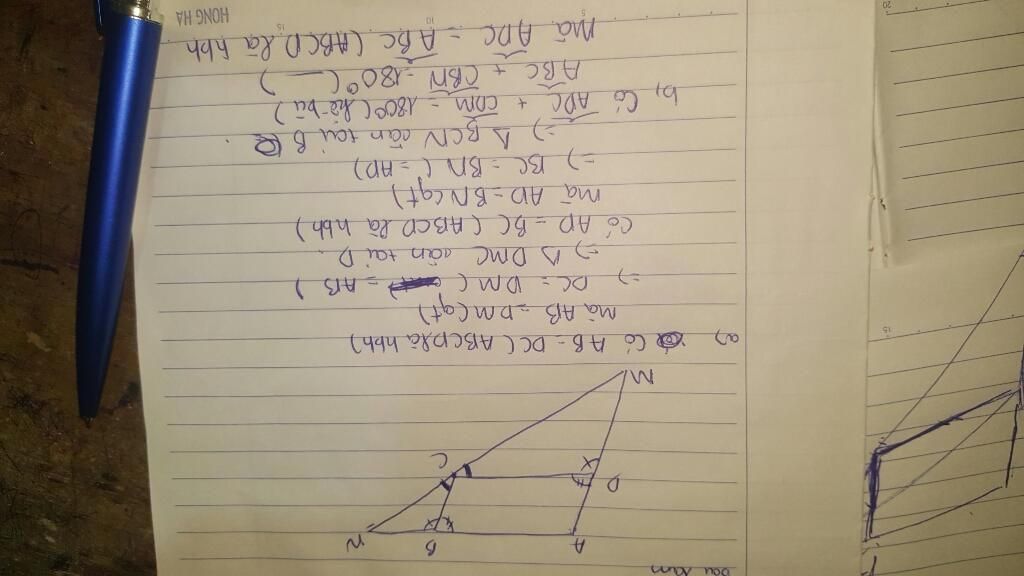 Bài làm
A
B
N
D
C
M
a) Có AB = DC (ABCD là hbh)
mà AB = DM (gt)
=> DC = DM ( = AB )
=> Δ DMC cân tại D.
Có AD = BC ( ABCD là hbh )
mà AD = BN (gt)
=> BC = BN ( = AD )
=> Δ BCN cân tại B
b, Có ADC + CDM = 180° ( kề bù )
ABC + CBN = 180° ( — )
mà ADC = ABC ( ABCD là hbh
HONG HA
5
10
15
20
15